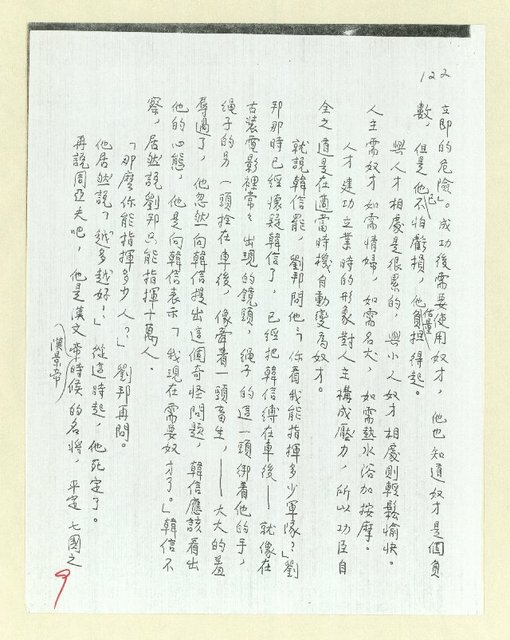 122
立即的危險」。成功後需要使用奴才,他也知道奴才是個負
數,但是他已不怕虧損,他自信負擔得起。
與人才相處是很累的,與小人奴才相處則輕鬆愉快。
人主需奴才如需情婦,如需名犬,如需熱水浴加按摩。
人才建功立業時的形象對人主構成壓力,所以功臣自
全之道是在適當時機自動變為奴才。
就說韓信罷,劉邦問他「你看我能指揮多少軍隊?」劉
邦那時已經懷疑韓信了,已經把韓信縛在車後——就像在
古裝電影裡常常出現的鏡頭,繩子的這一頭綁着他的手,
繩子的另一頭拴在車後,像牽着一頭畜生,——大大的羞
辱過了,他忽然向韓信提出這個奇怪問題,韓信應該看出
他的心態,他是向韓信表示「我現在需要奴才了。」韓信不
察,居然說劉邦只能指揮十萬人。
「那麼你能指揮多少人?」劉邦再問。
他居然說「越多越好!」從這時起,他死定了。
再說周亞夫吧,他是漢文帝時候的名將,平定七國之
漢景帝
9